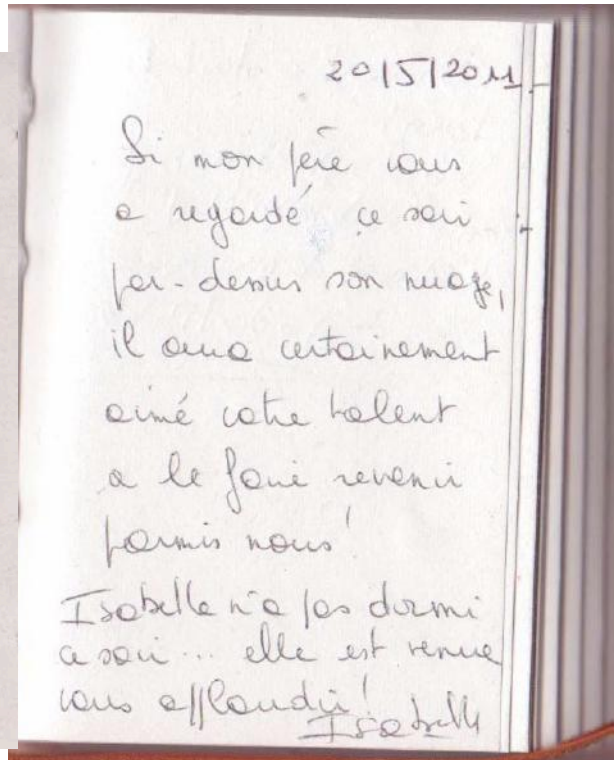 20/5/2011
Si mon père vous
a regardé ce soir
par-dessus son nuage,
il aura certainement
aimé votre talent
a le faire revenir
parmis nous !
Isabelle n'a pas dormi
ce soir... elle est venue
vous applaudir !
Isabelle